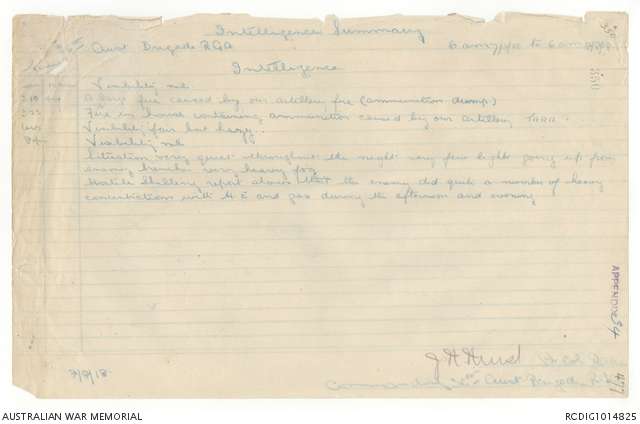 Intelligence Summary
36th Aust Brigade RGA 6 am to 6 am
Intelligence
Visibility nil
A large fire caused by our artillery fire (ammunition dump)
Fire in house containing ammunition caused by our artillery
Visibility fair but hazy.
Visibility nil
Situation very quiet throughout the night very few lights going up from
enemy trenches very heavy fog
Hostile Shelling report shows that the enemy did quite a number of heavy
concentrations with H E and gas during the afternoon and evening
APPENDIX 54
477
J H Hurst Lt Col
Commanding 36th Aust Brigade
AUSTRALIAN WAR MEMORIAL
RCDIG1014825